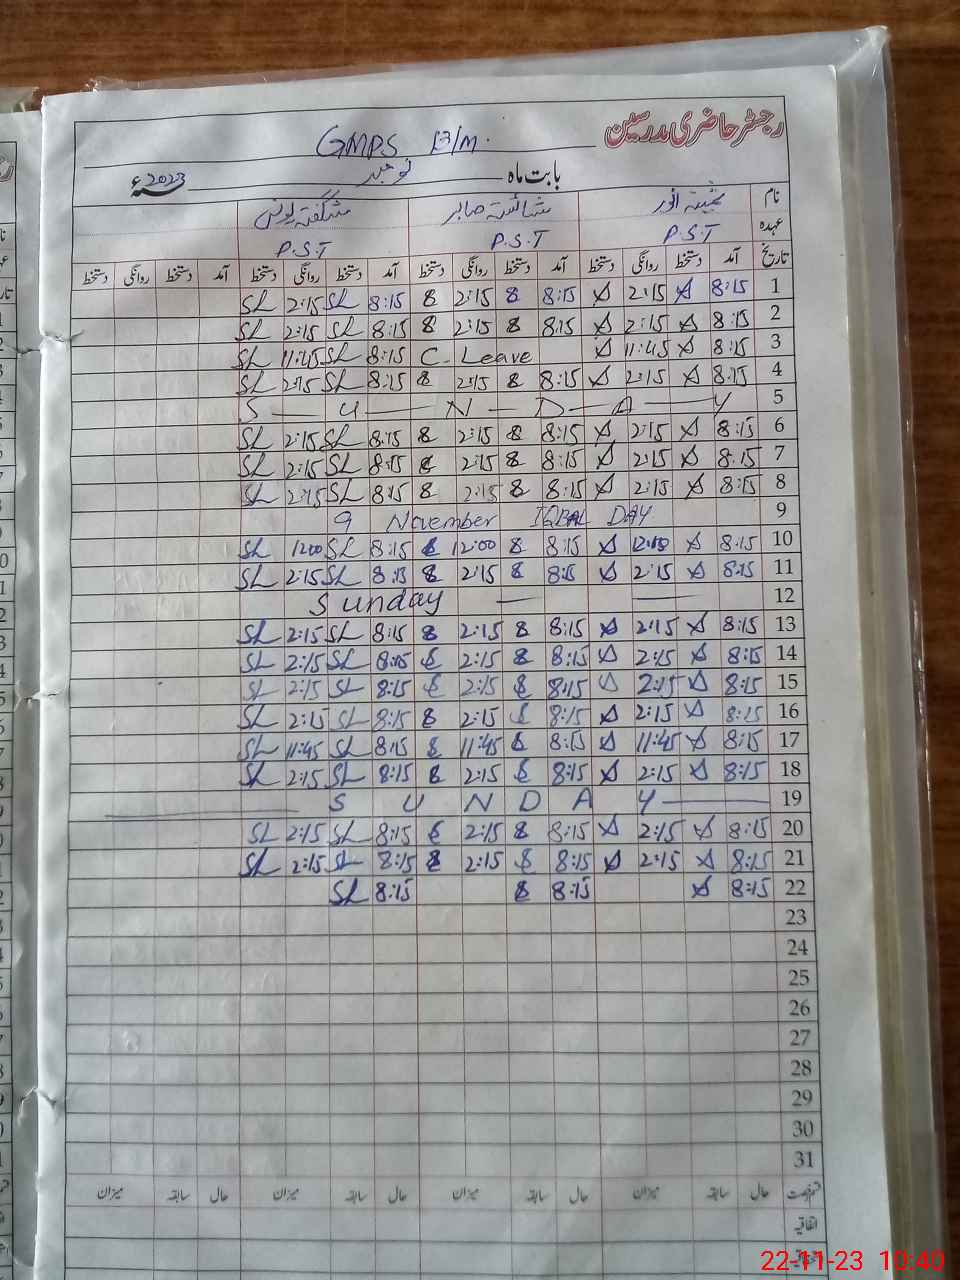 رجسٹر حاضری مدرسین
GMPS B/M.
بابت ماہ نومبر 2023ء
نام انور شائستہ صابر شگفتہ یونس
عہدہ P.S.T P.S.T P.S.T
تاریخ آمد دستخط روانگی دستخط آمد دستخط روانگی دستخط آمد دستخط روانگی دستخط آمد دستخط روانگی دستخط
1 8:15 2:15 8:15 8 2:15 8 8:15 SL 2:15 SL
2 8:15 2:15 8:15 8 2:15 8 8:15 SL 2:15 SL
3 8:15 11:45 C. Leave 8:15 SL 11:45 SL
4 8:15 2:15 8:15 8 2:15 8 8:15 SL 2:15 SL
5 S — U — N — D — A — Y
6 8:15 2:15 8:15 8 2:15 8 8:15 SL 2:15 SL
7 8:15 2:15 8:15 8 2:15 8 8:15 SL 2:15 SL
8 8:15 2:15 8:15 8 2:15 8 8:15 SL 2:15 SL
9 9 November IQBAL DAY
10 8:15 8:15 8 12:00 8 8:15 SL 1200 SL
11 8:15 2:15 8:15 8 2:15 8 8:15 SL 2:15 SL
12 Sunday — —
13 8:15 2:15 8:15 8 2:15 8 8:15 SL 2:15 SL
14 8:15 2:15 8:15 8 2:15 8 8:15 SL 2:15 SL
15 8:15 2:15 8:15 8 2:15 8 8:15 SL 2:15 SL
16 8:15 2:15 8:15 8 2:15 8 8:15 SL 2:15 SL
17 8:15 11:45 8:15 8 11:45 8 8:15 SL 11:45 SL
18 8:15 2:15 8:15 8 2:15 8 8:15 SL 2:15 SL
19 — S U N D A Y —
20 8:15 2:15 8:15 8 2:15 8 8:15 SL 2:15 SL
21 8:15 2:15 8:15 8 2:15 8 8:15 SL 2:15 SL
22 8:15 8:15 8 8:15 SL
23
24
25
26
27
28
29
30
31
قسم رخصت حال سابقہ میزان حال سابقہ میزان حال سابقہ میزان حال سابقہ میزان
اتفاقیہ
22-11-23 10:40